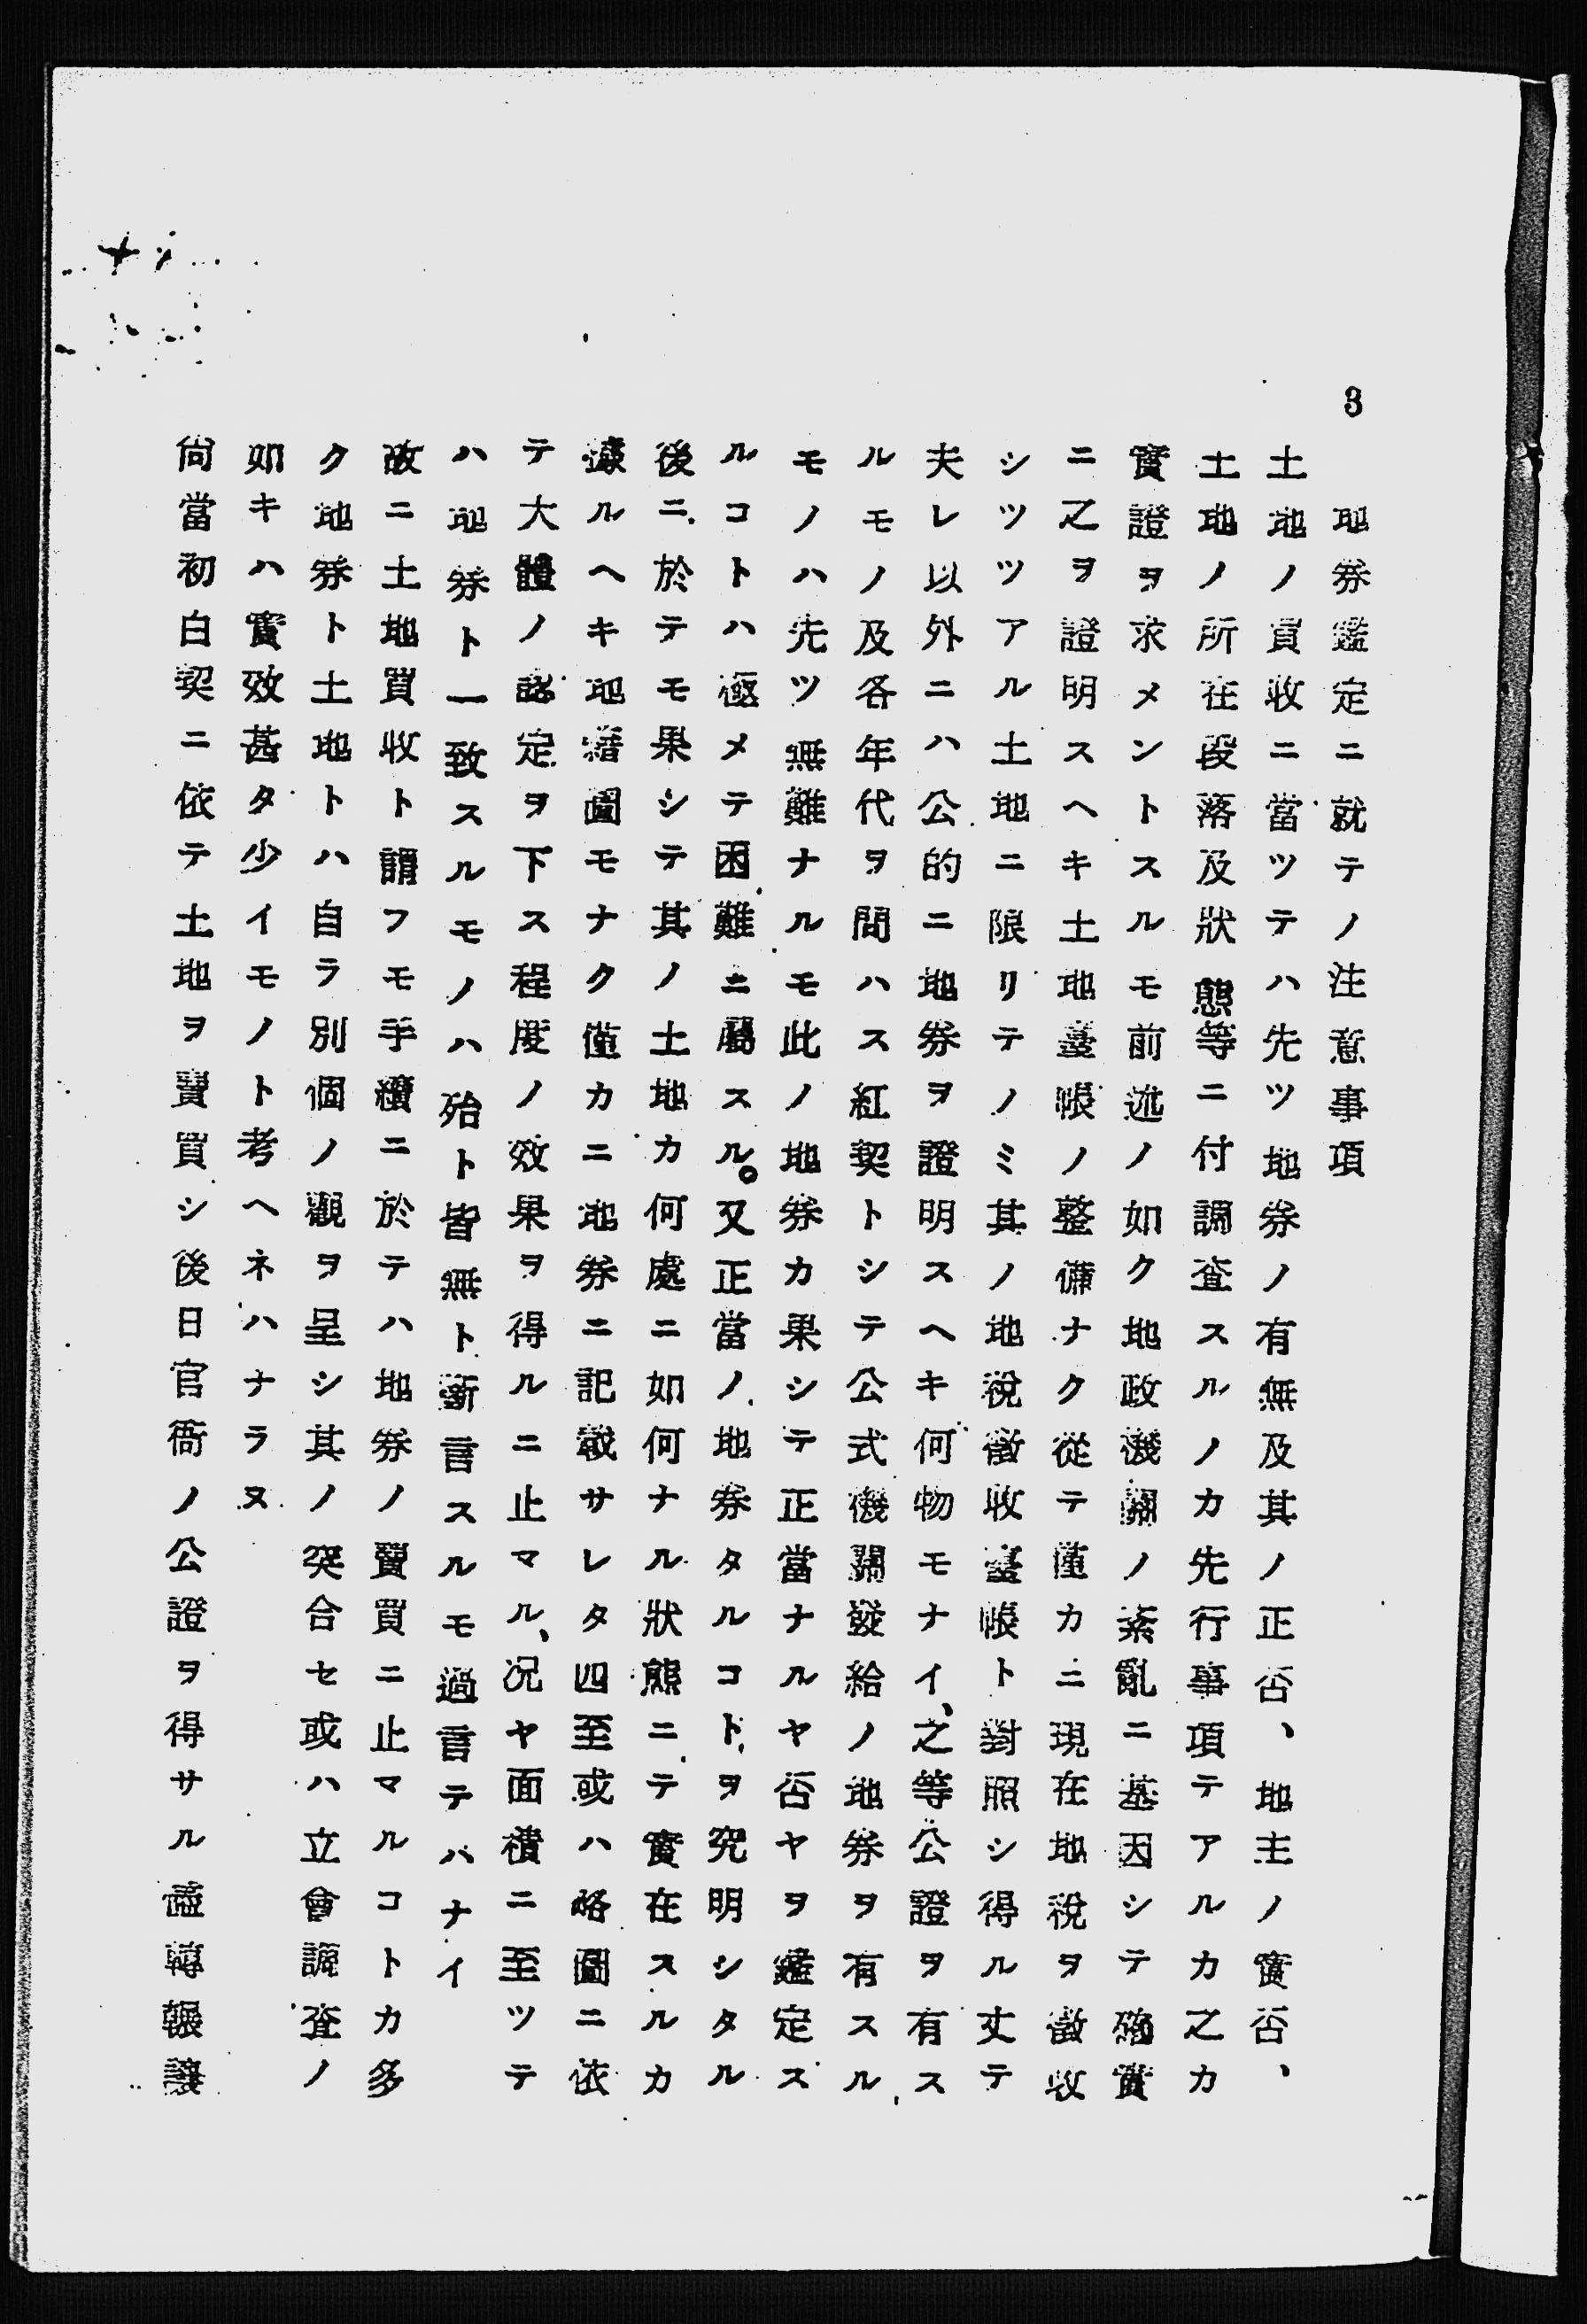 3
地券鑑定ニ就テノ注意事項
土地ノ買收ニ當ツテハ先ツ地券ノ有無及其ノ正否、地主ノ實否、
土地ノ所在段落及狀態等ニ付調査スルノカ先行事項テアルカ之カ
實證ヲ求メントスルモ前述ノ如ク地政機關ノ紊亂ニ基因シテ確實
ニ之ヲ證明スヘキ土地臺帳ノ整備ナク從テ僅カニ現在地稅ヲ徵收
シツツアル土地ニ限リテノミ其ノ地稅徵收臺帳ト對照シ得ル丈テ
夫レ以外ニハ公的ニ地券ヲ證明スヘキ何物モナイ、之等公證ヲ有ス
ルモノ及各年代ヲ問ハス紅契トシテ公式機關發給ノ地券ヲ有スル
モノハ先ツ無難ナルモ此ノ地券カ果シテ正當ナルヤ否ヤヲ鑑定ス
ルコトハ極メテ困難ニ屬スル。又正當ノ地券タルコトヲ究明シタル
後ニ於テモ果シテ其ノ土地カ何處ニ如何ナル狀態ニテ實在スルカ
據ルヘキ地籍圖モナク僅カニ地券ニ記載サレタ四至或ハ略圖ニ依
テ大體ノ認定ヲ下ス程度ノ效果ヲ得ルニ止マル、况ヤ面積ニ至ツテ
ハ地券ト一致スルモノハ殆ト皆無ト斷言スルモ過言テハナイ
故ニ土地買收ト謂フモ手續ニ於テハ地券ノ賣買ニ止マルコトカ多
ク地券ト土地トハ自ラ別個ノ觀ヲ呈シ其ノ突合セ或ハ立會調査ノ
如キハ實效甚タ少イモノト考ヘネハナラヌ
尙當初白契ニ依テ土地ヲ賣買シ後日官衙ノ公證ヲ得サル儘轉輾讓